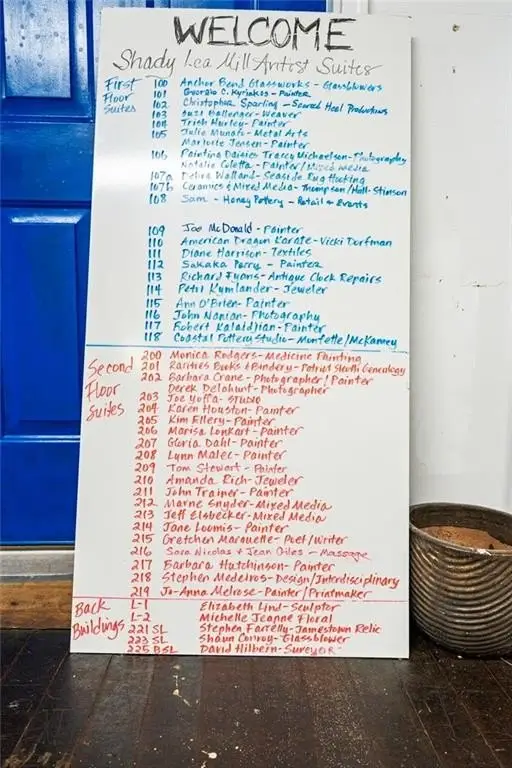 WELCOME
Shady Lea Mill Artist Suites
First Floor Suites
100 Anchor Bend Glassworks - Glassblowers
101 Georgia C. Kyriakos - Painter
102 Christopher Sparling - Sacred Heal Productions
103 Suzi Ballenger - Weaver
104 Trish Hurley - Painter
105 Julie Munafo - Metal Arts
Marlotte Jensen - Painter
106 Painting Daisies Tracey Michaelson - Photography
Natalie Coletta - Painter/Mixed media
107a Debra Walland - Seaside Rug Hooking
107b Ceramics & Mixed Media - Thompson/Hall-Stinson
108 Sam - Honey Pottery - Retail & Events
109 Joe McDonald - Painter
110 American Dragon Karate - Vicki Dorfman
111 Diane Harrison - Textiles
112 Sakaka Perry - Painter
113 Richard Fyans - Antique Clock Repairs
114 Petri Kymlander - Jeweler
115 Ann O'Brien - Painter
116 John Nanian - Photography
117 Robert Kalaidjian - Painter
118 Coastal Pottery Studio - Monfette/McKanney
Second Floor Suites
200 Monica Rodgers - Medicine Painting
201 Rarities Books & Bindery - Patriot Sleuth Genealogy
202 Barbara Crane - Photographer/Painter
Derek Delahunt - Photographer
203 Joe Yoffa - STUDIO
204 Karen Houston - Painter
205 Kim Ellery - Painter
206 Marisa Lonkart - Painter
207 Gloria Dahl - Painter
208 Lynn Malec - Painter
209 Tom Stewart - Painter
210 Amanda Rich - Jeweler
211 John Trainer - Painter
212 Marne Snyder - Mixed Media
213 Jeff Elsbecker - Mixed Media
214 Jane Loomis - Painter
215 Gretchen Marouette - Poet/Writer
216 Sara Nicolas & Jean Giles - Massage
217 Barbara Hutchinson - Painter
218 Stephen Medeiros - Design/Interdisciplinary
219 Jo-Anna Melrose - Painter/Printmaker
Back Buildings
L-1 Elizabeth Lind - Sculptor
L-2 Michelle Jeanne Floral
221 SL Stephen Farrelly - Jamestown Relic
223 SL Shaun Conroy - Glassblower
225 BSL David Hilbern - Sureyor